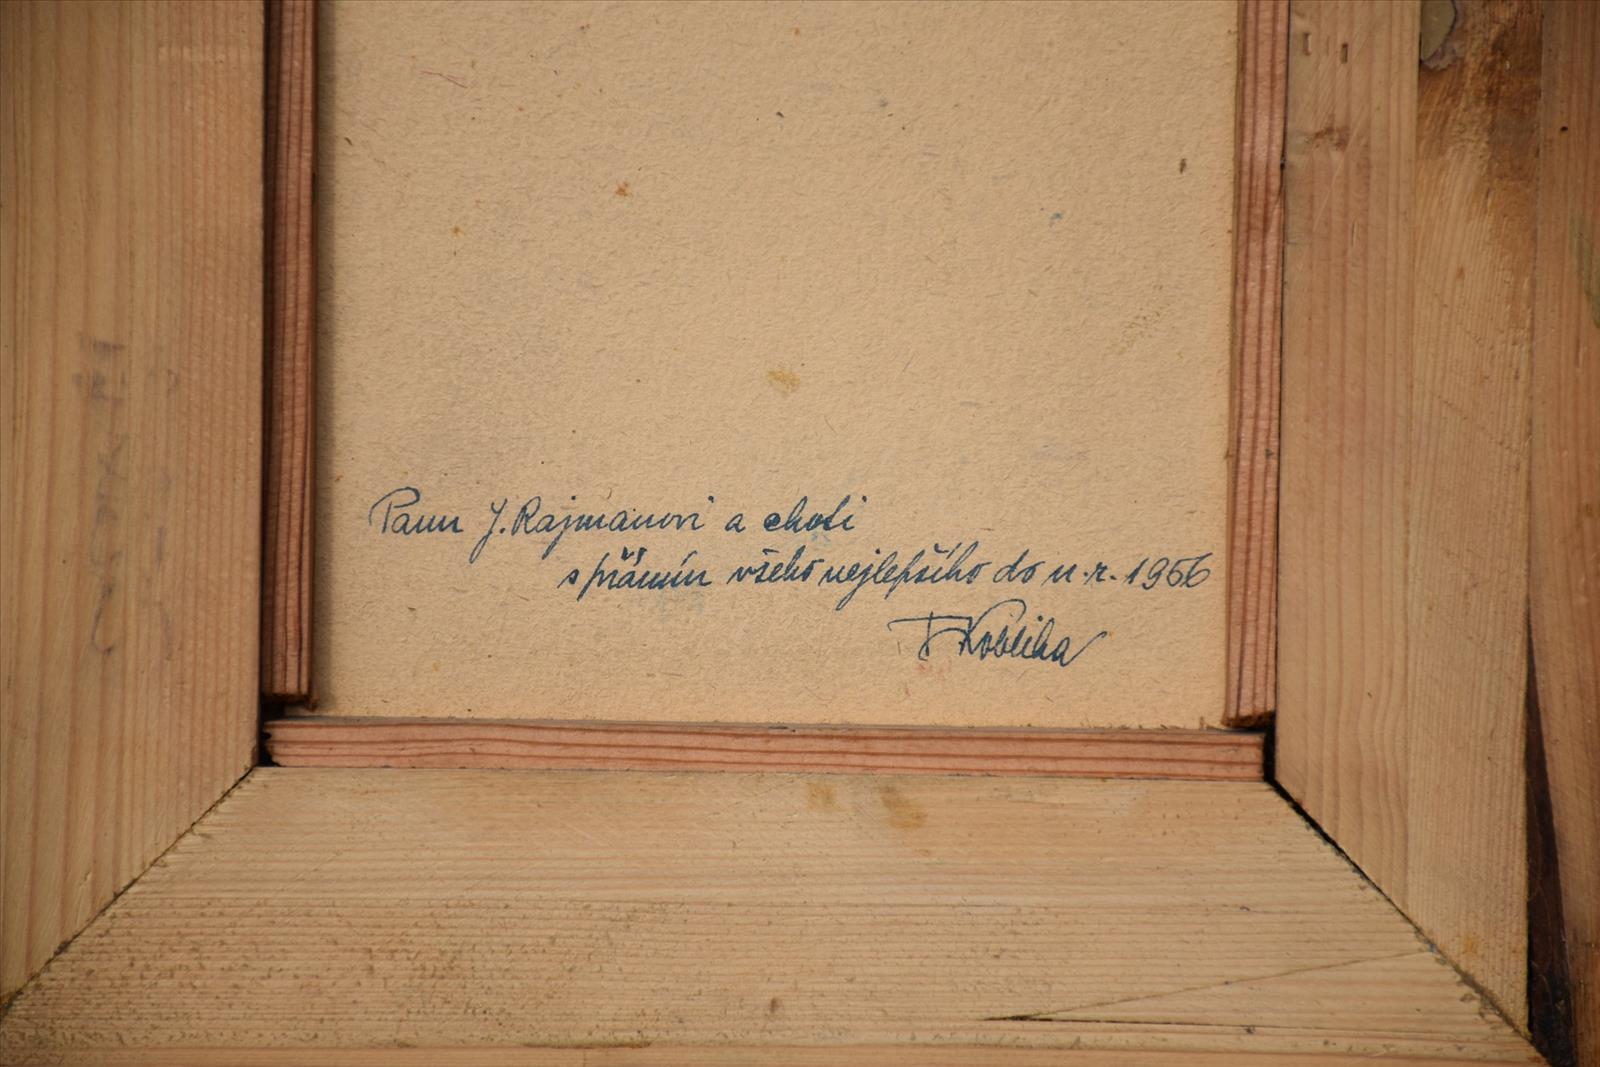 Panu J. Rajmanovi a choti
s přáním všeho nejlepšího do n. r. 1956
F Kobliha